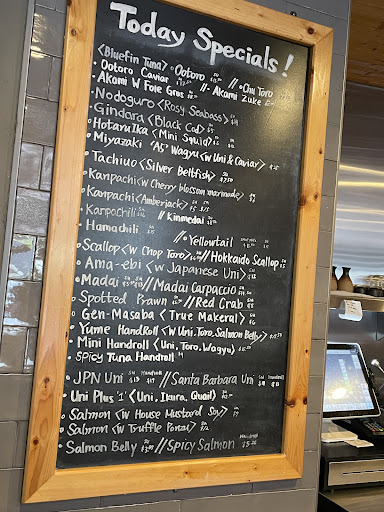 Today Specials!
<Bluefin Tuna> • Ootoro // • Chu Toro
• Ootoro Caviar //
• Akami W Foie Gras // - Akami Zuke
• Nodoguro <Rosy Seabass>
• Gindara <Black Cod>
• Hotaruika <Mini Squid>
• Miyazaki "A5" Wagyu <w Uni & Caviar>
• Tachiuo <Silver Beltfish>
• Kanpachi <w Cherry blossom marinade>
• Kanpachi <Amberjack>
• Kanpachili // Kinmedai
• Hamachili // • Yellowtail
• Scallop <w Chop Toro> // • Hokkaido Scallop
• Ama-ebi <w Japanese Uni>
• Madai // Madai Carpaccio
• Spotted Prawn // • Red Crab
• Gen-Masaba <True Makeral>
• Yume HandRoll <w Uni, Toro, Salmon Belly>
• Mini Handroll <Uni, Toro, Wagyu>
• Spicy Tuna Handroll
• JPN Uni // Santa Barbara Uni
• Uni Plus '1' <Uni, Ikura, Quail>
• Salmon <w House Mustard Soy>
• Salmon <w Truffle Ponzu>
• Salmon Belly // Spicy Salmon